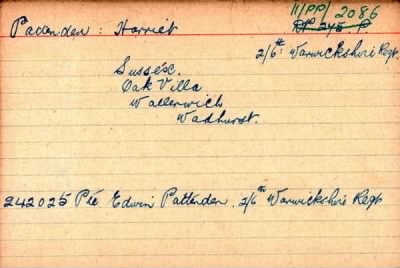 11/PP/2086
Pattenden : Harriet
DP 245 P.
2/6th Warwickshire Regt.
Sussex.
Oak Villa
Wallerwich
Wadhurst.
242025 Pte Edwin Pattenden. 2/6th Warwickshire Regt